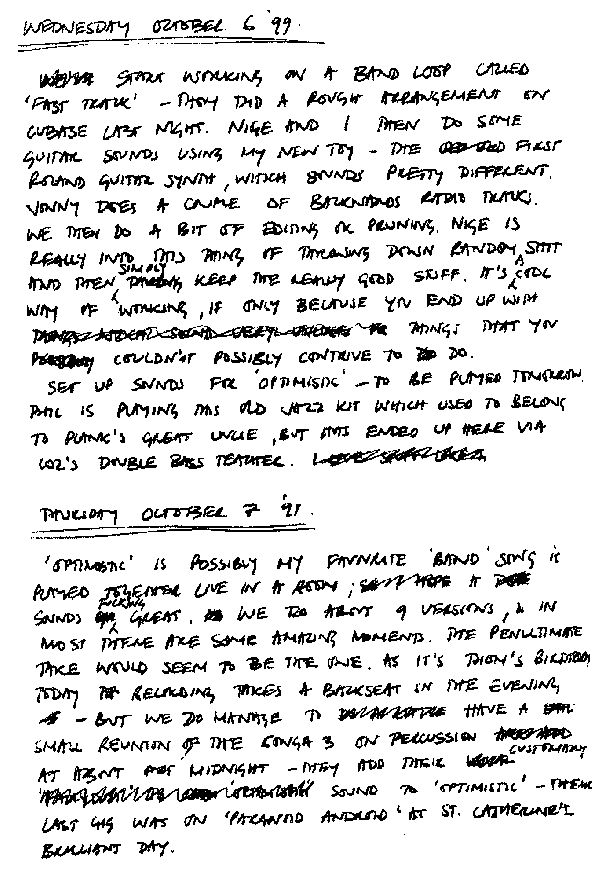 WEDNESDAY OCTOBER 6 '99.
START WORKING ON A BAND LOOP CALLED
'FAST TRACK' – THEY DID A ROUGH ARRANGEMENT ON
CUBASE LAST NIGHT. NIGE AND I THEN DO SOME
GUITAR SOUNDS USING MY NEW TOY – THE FIRST
ROLAND GUITAR SYNTH, WHICH SOUNDS PRETTY DIFFERENT.
JONNY DOES A COUPLE OF BACKWARDS RADIO TRACKS.
WE THEN DO A BIT OF EDITING OR PRUNING. NIGE IS
REALLY INTO THIS THING OF THROWING DOWN RANDOM SHIT
AND THEN SIMPLY KEEP THE REALLY GOOD STUFF. IT'S COOL
WAY OF WORKING, IF ONLY BECAUSE YOU END UP WITH
THINGS THAT YOU
COULDN'T POSSIBLY CONTRIVE TO DO.
SET UP SOUNDS FOR 'OPTIMISTIC' – TO BE PLAYED TOMORROW.
PHIL IS PLAYING THIS OLD JAZZ KIT WHICH USED TO BELONG
TO PLANK'S GREAT UNCLE, BUT THIS ENDED UP HERE VIA
COZ'S DOUBLE BASS TEACHER.
THURSDAY OCTOBER 7 '99.
'OPTIMISTIC' IS POSSIBLY MY FAVOURITE 'BAND' SONG IE
PLAYED TOGETHER LIVE IN A ROOM; IT
SOUNDS FUCKING GREAT. WE DO ABOUT 9 VERSIONS, & IN
MOST THERE ARE SOME AMAZING MOMENTS. THE PENULTIMATE
TAKE WOULD SEEM TO BE THE ONE. AS IT'S THOM'S BIRTHDAY
TODAY RECORDING TAKES A BACKSEAT IN THE EVENING
– BUT WE DO MANAGE TO HAVE A
SMALL REUNION OF THE CONGA 3 ON PERCUSSION
AT ABOUT MIDNIGHT – THEY ADD THEIR CUSTOMARY
SOUND TO 'OPTIMISTIC' – THEIR
LAST GIG WAS ON 'PARANOID ANDROID' AT ST. CATHERINE'S
BRILLIANT DAY.